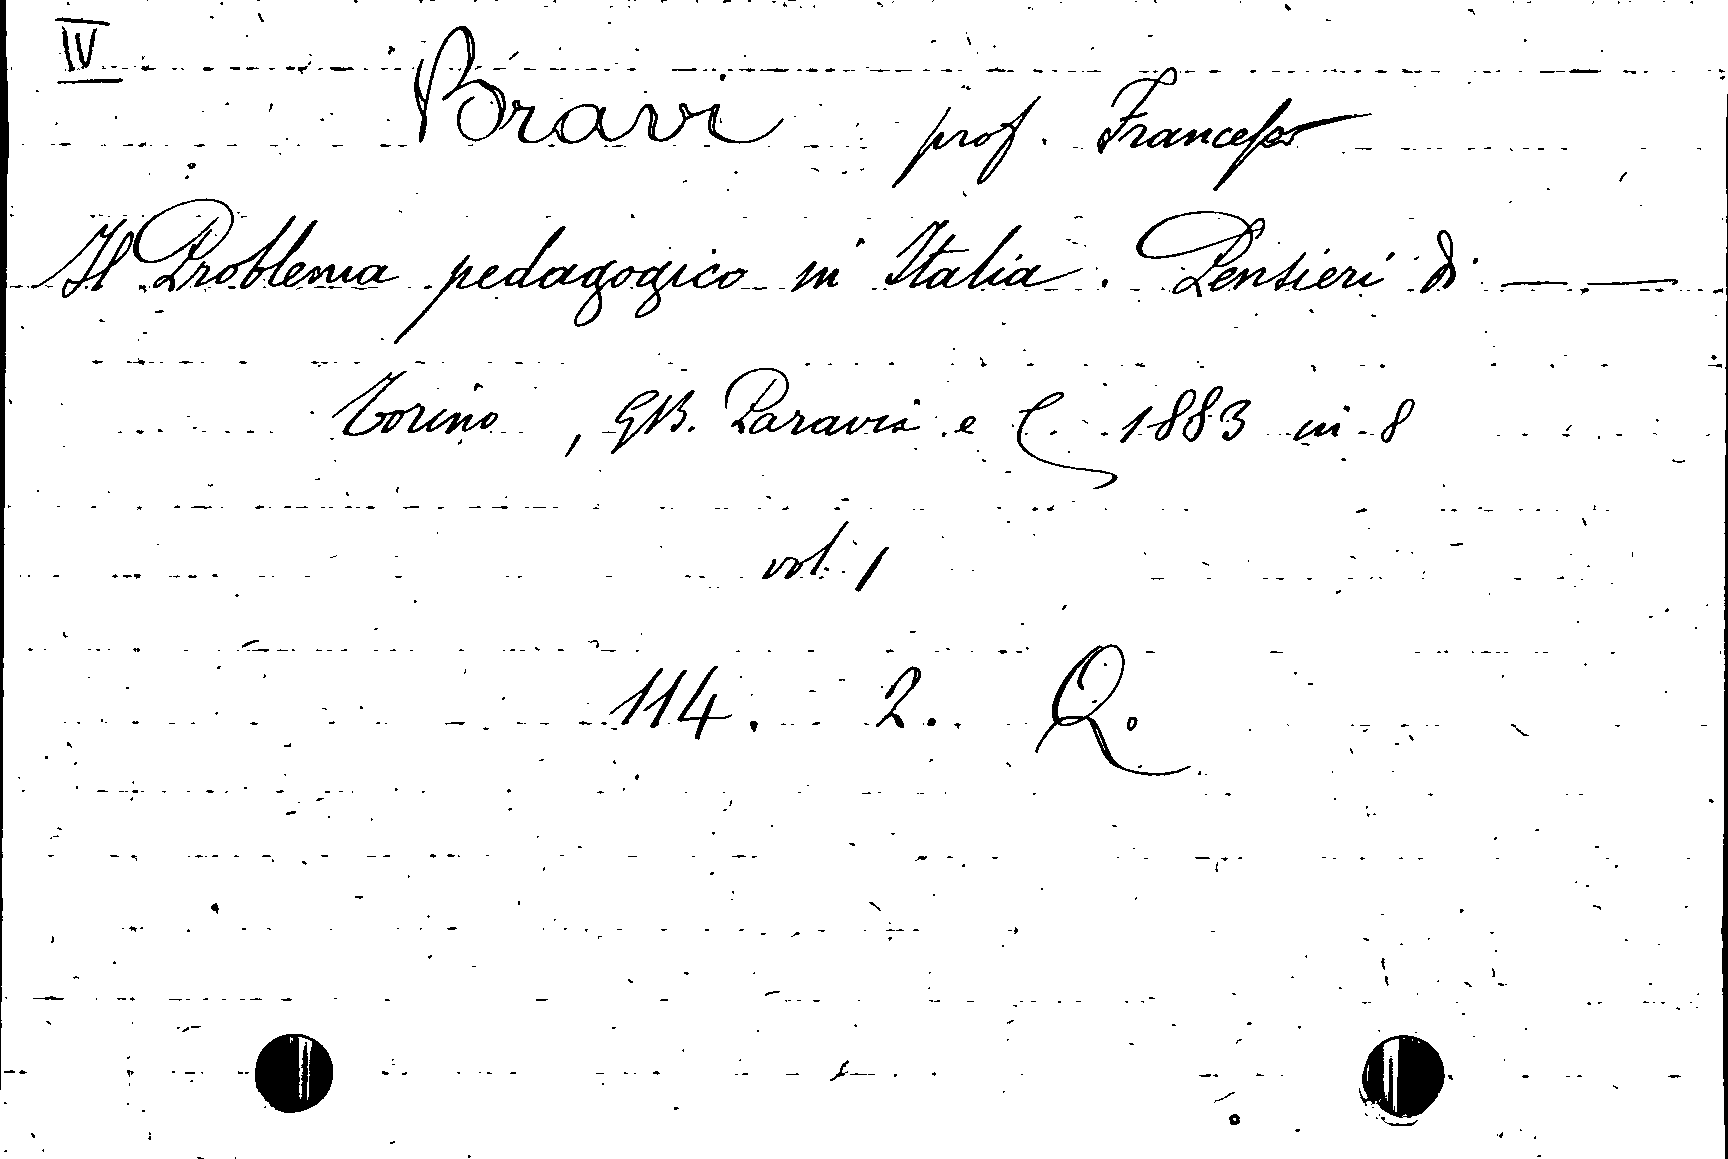 IV
Bravi prof. Francesco
Il Problema pedagogico in Italia. Pensieri di — —
Torino, G.B. Paravia e C. 1883 in 8
vol. 1
114. 2. Q.